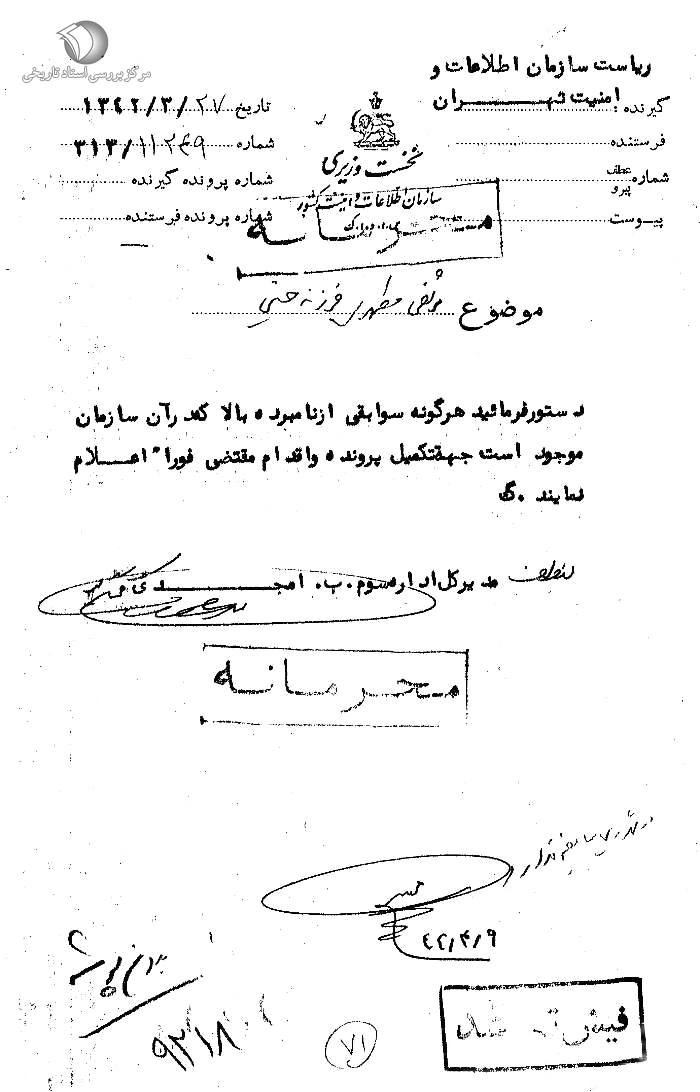 مرکز بررسی اسناد تاریخی
ریاست سازمان اطلاعات و
امنیت تهـــران
گیرنده :
فرستنده
شماره عطف
پیرو
پیوست
نخست وزیری
سازمان اطلاعات و امنیت کشور
س.ا.و.ا.ک
محرمانه
تاریخ ۱۳۴۲/۳/۲۷
شماره ۳۱۳/۱۱۲۴۹
شماره پرونده گیرنده
شماره پرونده فرستنده
موضوع مرتضی مطهری فرزند
دستورفرمائید هرگونه سوابقی ازنامبرده بالا که درآن سازمان
موجود است جهت تکمیل پرونده واقدام مقتضی فورا" اعــلام
نمایند .گ
مدیرکل اداره سوم .ب. امجــدی
محرمانه
۴۲/۴/۹
۹۲۱۸
۷۱
فیش شد